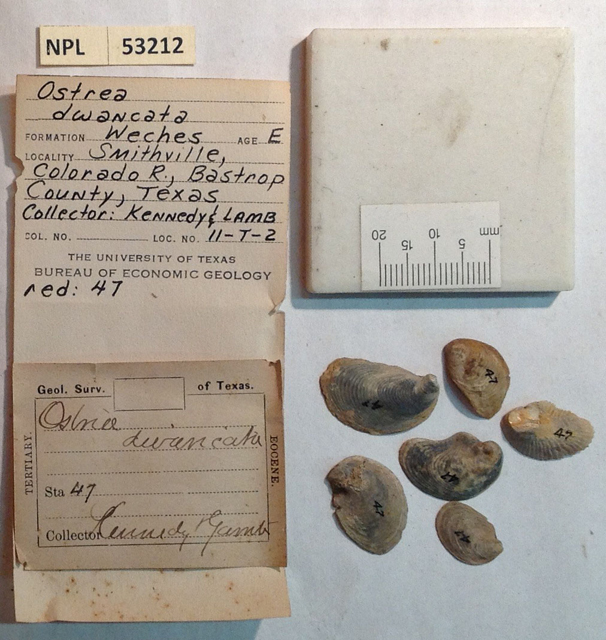 NPL 53212
Ostrea
dwancata
FORMATION Weches AGE E
LOCALITY Smithville,
Colorado R., Bastrop
County, Texas
Collector: Kennedy & LAMB
COL. NO. LOC. NO. 11-T-2
THE UNIVERSITY OF TEXAS
BUREAU OF ECONOMIC GEOLOGY
red: 47
Geol. Surv. of Texas.
Ostrea
dwancata
TERTIARY.
EOCENE.
Sta 47
Collector Kennedy & Lamb
20 15 10 5 mm
47
47
47
47
47
47